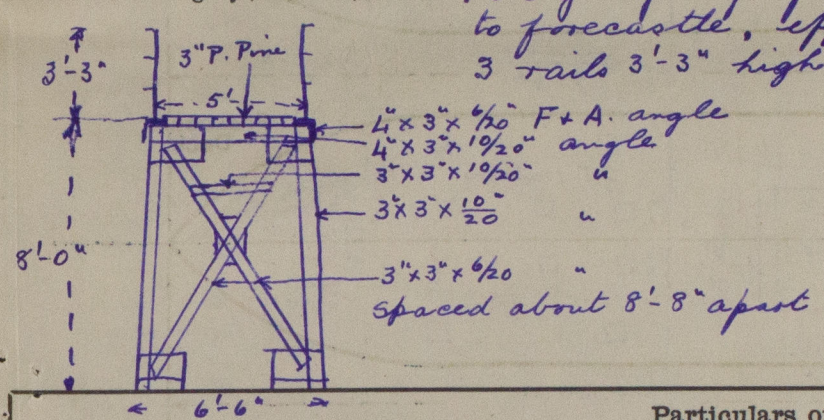 to forecastle,
3 rails 3'-3" high
3'-3"
3" P. Pine
5'
4" x 3" x 6/20" F & A. angle
4" x 3" x 10/20" angle
3" x 3" x 10/20" "
3" x 3" x 10/20" "
8'-0"
3" x 3" x 6/20 "
Spaced about 8'-8" apart
6'-6"
Particulars